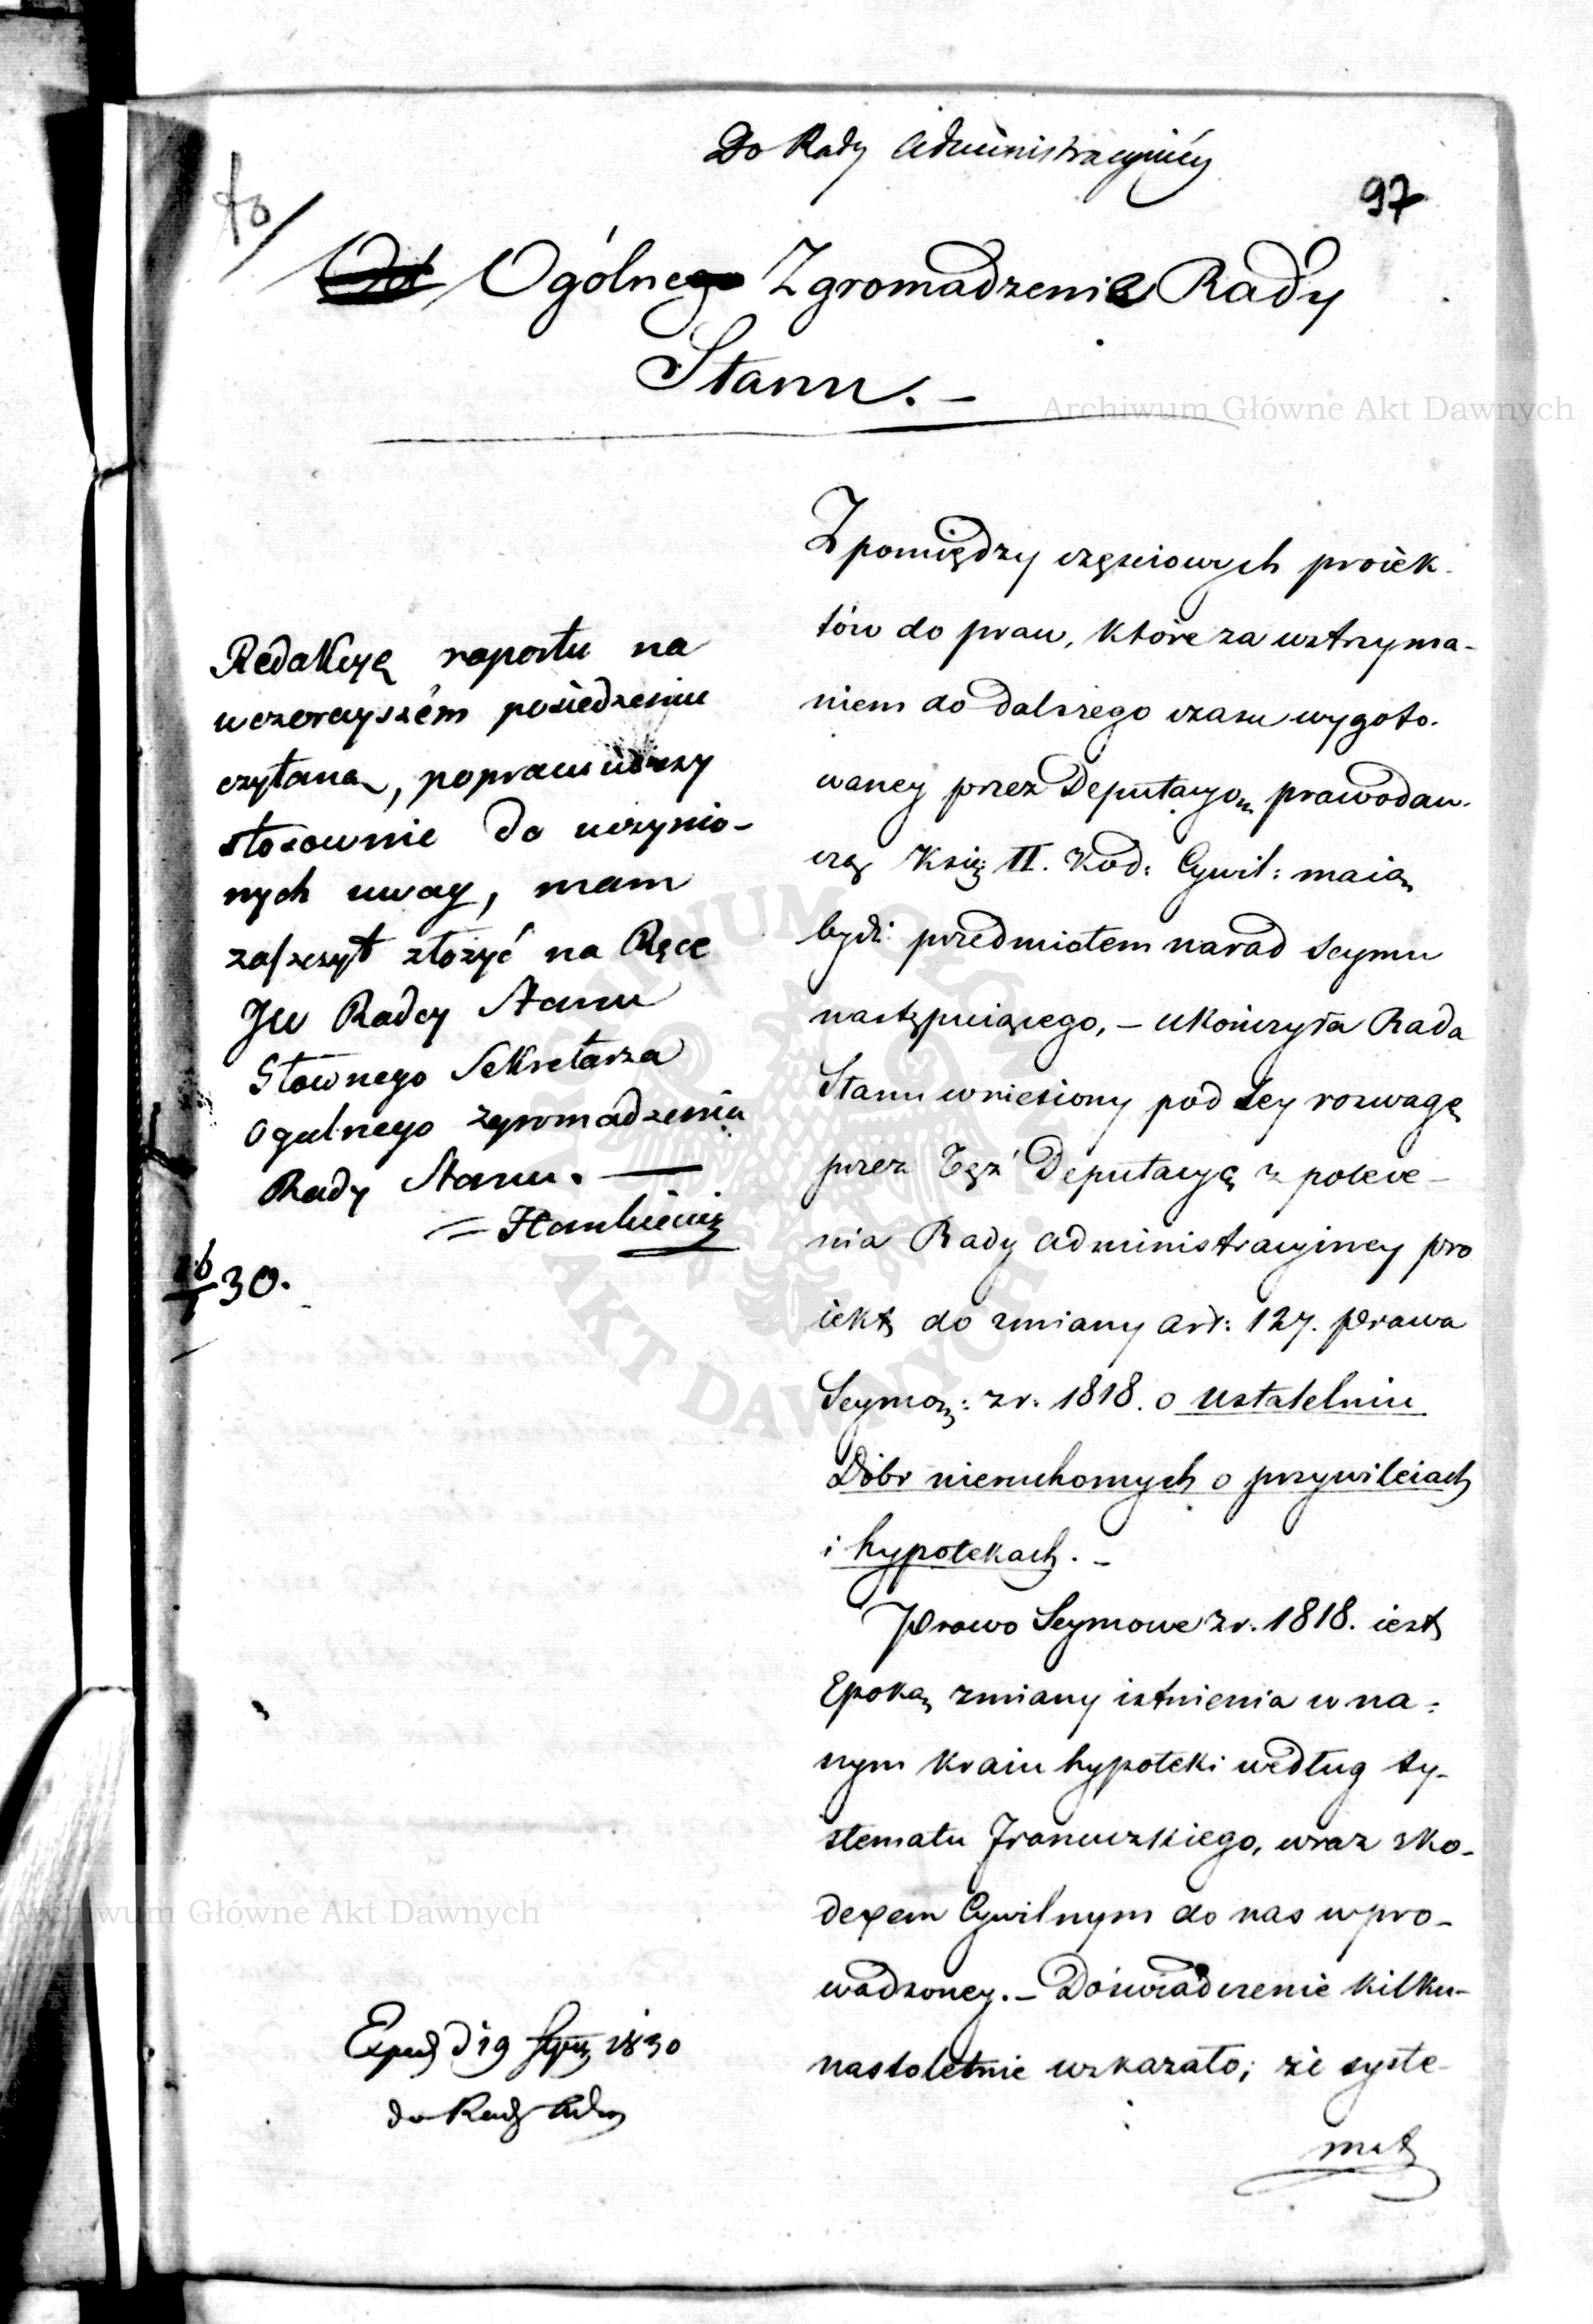 Do Rady Administracyiney
97
Od Ogólnego Zgromadzenie Rady
Stanu. –
Archiwum Główne Akt Dawnych
Redakcyę raportu na
wczorayszém posiedzeniu
czytaną, poprawiwszy
stosownie do uczynio-
nych uwag, mam
zaszczyt złożyć na Ręce
JW Radcy Stanu
Głownego Sekretarza
Ogulnego zgromadzenia
Rady Stanu. —
30.
Z pomiędzy częściowych proiek-
tów do praw, które za wstrzyma-
niem do dalszego czasu wygoto-
waney przez Deputacyą prawodaw-
czą Księ: II. Kod: Cywil: maią
bydź przedmiotem narad Seymu
następuiącego, – ukończyła Rada
Stanu wniesiony pod Jey rozwagę
przez Tęż Deputacyę z polece-
nia Rady administracyiney pro
iekt do zmiany art: 127. Prawa
Seymow: z r. 1818. o ustaleniu
Dóbr nieruchomych o przywileiach
i hypotekach. –
Prawo Seymowe z r. 1818. iest
Epoką zmiany istnienia w na-
szym kraiu hypoteki według sy-
stematu Francuzkiego, wraz z ko-
dexem Cywilnym do nas wpro-
wadzoney. – Doświadczenie kilku-
nastoletnie wskazało; że syste-
mat
Archiwum Główne Akt Dawnych
Exped d 19 Stycz 1830
do Rady Adm
ARCHIWUM GŁÓWNE AKT DAWNYCH